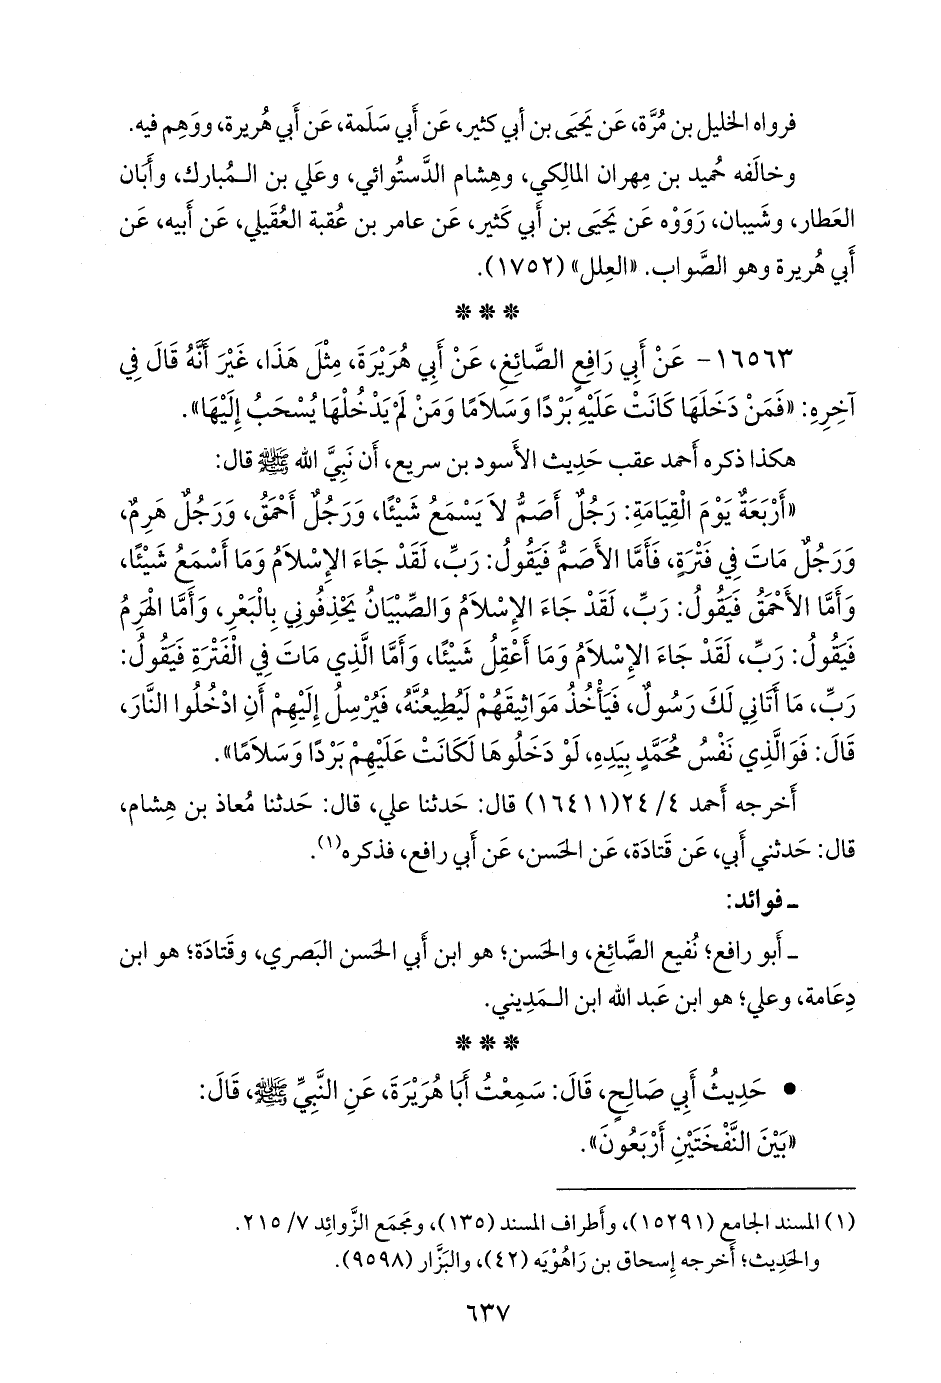 فرواه الخليل بن مُرَّة، عَن يَحيَى بن أَبي كثير، عَن أَبي سَلَمة، عَن أَبي هُريرة، ووَهِم فيه.
وخالَفه حُميد بن مِهران المالِكي، وهِشام الدَّستُوائي، وعَلي بن الـمُبارك، وأَبَان
العَطار، وشَيبان، رَوَوْه عَن يَحيَى بن أَبي كَثير، عَن عامر بن عُقبة العُقَيلي، عَن أَبيه، عَن
أَبي هُريرة وهو الصَّواب. «العِلل» (١٧٥٢).
* * *
١٦٥٦٣- عَنْ أَبِي رَافِعٍ الصَّائِغِ، عَنْ أَبِي هُرَيْرَةَ، مِثْلَ هَذَا، غَيْرَ أَنَّهُ قَالَ فِي
آخِرِهِ: «فَمَنْ دَخَلَهَا كَانَتْ عَلَيْهِ بَرْدًا وَسَلاَمًا وَمَنْ لَمْ يَدْخُلْهَا يُسْحَبُ إِلَيْهَا».
هكذا ذكره أَحمد عقب حَدِيث الأَسود بن سريع، أَن نَبيَّ الله ﷺ قال:
«أَرْبَعَةٌ يَوْمَ الْقِيَامَةِ: رَجُلٌ أَصَمُّ لاَ يَسْمَعُ شَيْئًا، وَرَجُلٌ أَحْمَقُ، وَرَجُلٌ هَرِمٌ،
وَرَجُلٌ مَاتَ فِي فَتْرَةٍ، فَأَمَّا الأَصَمُّ فَيَقُولُ: رَبِّ، لَقَدْ جَاءَ الإِسْلاَمُ وَمَا أَسْمَعُ شَيْئًا،
وَأَمَّا الأَحْمَقُ فَيَقُولُ: رَبِّ، لَقَدْ جَاءَ الإِسْلاَمُ وَالصِّبْيَانُ يَحْذِفُونِي بِالْبَعْرِ، وَأَمَّا الْهَرِمُ
فَيَقُولُ: رَبِّ، لَقَدْ جَاءَ الإِسْلاَمُ وَمَا أَعْقِلُ شَيْئًا، وَأَمَّا الَّذِي مَاتَ فِي الْفَتْرَةِ فَيَقُولُ:
رَبِّ، مَا أَتَانِي لَكَ رَسُولٌ، فَيَأْخُذُ مَوَاثِيقَهُمْ لَيُطِيعُنَّهُ، فَيُرْسِلُ إِلَيْهِمْ أَنِ ادْخُلُوا النَّارَ،
قَالَ: فَوَالَّذِي نَفْسُ مُحَمَّدٍ بِيَدِهِ، لَوْ دَخَلُوهَا لَكَانَتْ عَلَيْهِمْ بَرْدًا وَسَلاَمًا».
أَخرجه أَحمد ٤/ ٢٤(١٦٤١١) قال: حَدثنا علي، قال: حَدثنا مُعاذ بن هِشام،
قال: حَدثني أَبي، عَن قَتادَة، عَن الحَسن، عَن أَبي رافع، فذكره(١).
ـ فوائد:
ـ أَبو رافع؛ نُفيع الصَّائغ، والحَسن؛ هو ابن أَبي الحَسن البَصري، وقَتادَة؛ هو ابن
دِعَامة، وعلي؛ هو ابن عَبد الله ابن الـمَديني.
* * *
• حَدِيثُ أَبِي صَالِحٍ، قَالَ: سَمِعْتُ أَبَا هُرَيْرَةَ، عَنِ النَّبِيِّ ﷺ، قَالَ:
«بَيْنَ النَّفْخَتَيْنِ أَرْبَعُونَ».
(١) المسند الجامع (١٥٢٩١)، وأَطراف المسند (١٣٥)، ومَجمَع الزَّوائِد ٧/ ٢١٥.
والحَدِيث؛ أَخرجه إِسحاق بن رَاهُوْيَه (٤٢)، والبَزَّار (٩٥٩٨).
٦٣٧